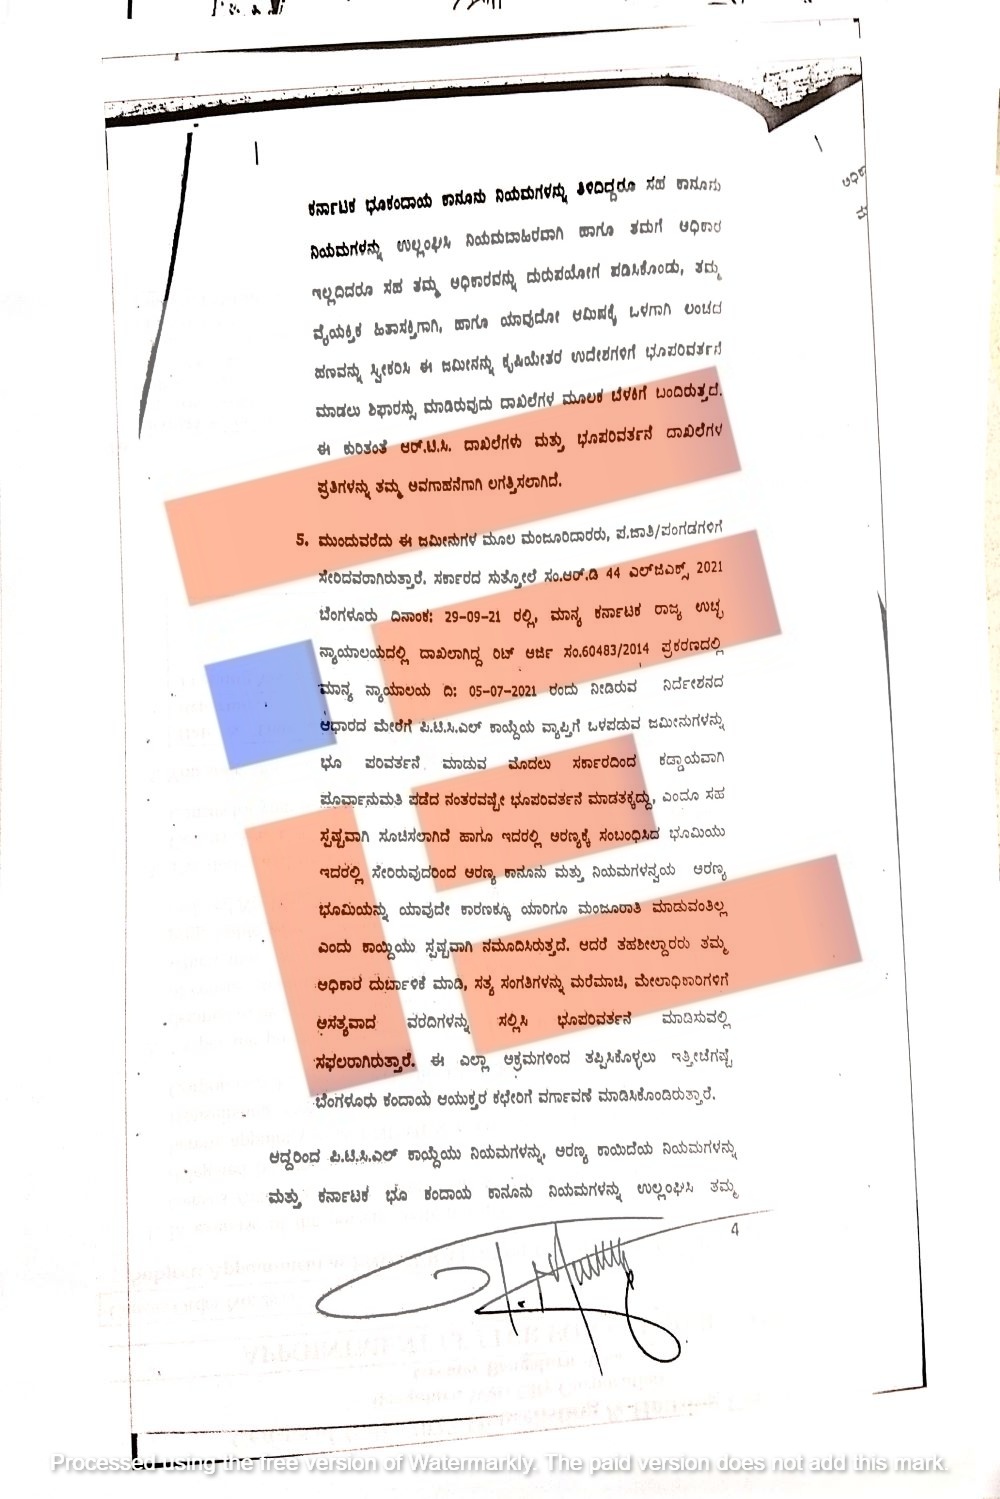 ಕರ್ನಾಟಕ ಭೂಕಂದಾಯ ಕಾನೂನು ನಿಯಮಗಳನ್ನು ತಿಳಿದಿದ್ದರೂ ಸಹ ಕಾನೂನು
ನಿಯಮಗಳನ್ನು ಉಲ್ಲಂಘಿಸಿ ನಿಯಮಬಾಹಿರವಾಗಿ ಹಾಗೂ ತಮಗೆ ಅಧಿಕಾರ
ಇಲ್ಲದಿದರೂ ಸಹ ತಮ್ಮ ಅಧಿಕಾರವನ್ನು ದುರುಪಯೋಗ ಪಡಿಸಿಕೊಂಡು, ತಮ್ಮ
ವೈಯಕ್ತಿಕ ಹಿತಾಸಕ್ತಿಗಾಗಿ, ಹಾಗೂ ಯಾವುದೋ ಆಮಿಷಕ್ಕೆ ಒಳಗಾಗಿ ಲಂಚದ
ಹಣವನ್ನು ಸ್ವೀಕರಿಸಿ ಈ ಜಮೀನನ್ನು ಕೃಷಿಯೇತರ ಉದೇಶಗಳಿಗೆ ಭೂಪರಿವರ್ತನೆ
ಮಾಡಲು ಶಿಫಾರಸ್ಸು ಮಾಡಿರುವುದು ದಾಖಲೆಗಳ ಮೂಲಕ ಬೆಳಕಿಗೆ ಬಂದಿರುತ್ತದೆ.
ಈ ಕುರಿತಂತೆ ಆರ್.ಟಿ.ಸಿ. ದಾಖಲೆಗಳು ಮತ್ತು ಭೂಪರಿವರ್ತನೆ ದಾಖಲೆಗಳ
ಪ್ರತಿಗಳನ್ನು ತಮ್ಮ ಅವಗಾಹನೆಗಾಗಿ ಲಗತ್ತಿಸಲಾಗಿದೆ.
5. ಮುಂದುವರೆದು ಈ ಜಮೀನುಗಳ ಮೂಲ ಮಂಜೂರಿದಾರರು, ಪ.ಜಾತಿ/ಪಂಗಡಗಳಿಗೆ
ಸೇರಿದವರಾಗಿರುತ್ತಾರೆ. ಸರ್ಕಾರದ ಸುತ್ತೋಲೆ ಸಂ.ಆರ್.ಡಿ 44 ಎಲ್‌ಜಿಎಕ್ಸ್ 2021
ಬೆಂಗಳೂರು ದಿನಾಂಕ: 29-09-21 ರಲ್ಲಿ, ಮಾನ್ಯ ಕರ್ನಾಟಕ ರಾಜ್ಯ ಉಚ್ಛ
ನ್ಯಾಯಾಲಯದಲ್ಲಿ ದಾಖಲಾಗಿದ್ದ ರಿಟ್ ಅರ್ಜಿ ಸಂ.60483/2014 ಪ್ರಕರಣದಲ್ಲಿ
ಮಾನ್ಯ ನ್ಯಾಯಾಲಯ ದಿ: 05-07-2021 ರಂದು ನೀಡಿರುವ ನಿರ್ದೇಶನದ
ಆಧಾರದ ಮೇರೆಗೆ ಪಿ.ಟಿ.ಸಿ.ಎಲ್ ಕಾಯ್ದೆಯ ವ್ಯಾಪ್ತಿಗೆ ಒಳಪಡುವ ಜಮೀನುಗಳನ್ನು
ಭೂ ಪರಿವರ್ತನೆ ಮಾಡುವ ಮೊದಲು ಸರ್ಕಾರದಿಂದ ಕಡ್ಡಾಯವಾಗಿ
ಪೂರ್ವಾನುಮತಿ ಪಡೆದ ನಂತರವಷ್ಟೇ ಭೂಪರಿವರ್ತನೆ ಮಾಡತಕ್ಕದ್ದು, ಎಂದೂ ಸಹ
ಸ್ಪಷ್ಟವಾಗಿ ಸೂಚಿಸಲಾಗಿದೆ ಹಾಗೂ ಇದರಲ್ಲಿ ಅರಣ್ಯಕ್ಕೆ ಸಂಬಂಧಿಸಿದ ಭೂಮಿಯು
ಇದರಲ್ಲಿ ಸೇರಿರುವುದರಿಂದ ಅರಣ್ಯ ಕಾನೂನು ಮತ್ತು ನಿಯಮಗಳನ್ವಯ ಅರಣ್ಯ
ಭೂಮಿಯನ್ನು ಯಾವುದೇ ಕಾರಣಕ್ಕೂ ಯಾರಿಗೂ ಮಂಜೂರಾತಿ ಮಾಡುವಂತಿಲ್ಲ
ಎಂದು ಕಾಯ್ದೆಯು ಸ್ಪಷ್ಟವಾಗಿ ನಮೂದಿಸಿರುತ್ತದೆ. ಆದರೆ ತಹಶೀಲ್ದಾರರು ತಮ್ಮ
ಅಧಿಕಾರ ದುರ್ಬಾಳಿಕೆ ಮಾಡಿ, ಸತ್ಯ ಸಂಗತಿಗಳನ್ನು ಮರೆಮಾಚಿ, ಮೇಲಾಧಿಕಾರಿಗಳಿಗೆ
ಅಸತ್ಯವಾದ ವರದಿಗಳನ್ನು ಸಲ್ಲಿಸಿ ಭೂಪರಿವರ್ತನೆ ಮಾಡಿಸುವಲ್ಲಿ
ಸಫಲರಾಗಿರುತ್ತಾರೆ. ಈ ಎಲ್ಲಾ ಅಕ್ರಮಗಳಿಂದ ತಪ್ಪಿಸಿಕೊಳ್ಳಲು ಇತ್ತೀಚೆಗಷ್ಟೆ
ಬೆಂಗಳೂರು ಕಂದಾಯ ಆಯುಕ್ತರ ಕಛೇರಿಗೆ ವರ್ಗಾವಣೆ ಮಾಡಿಸಿಕೊಂಡಿರುತ್ತಾರೆ.
ಆದ್ದರಿಂದ ಪಿ.ಟಿ.ಸಿ.ಎಲ್ ಕಾಯ್ದೆಯು ನಿಯಮಗಳನ್ನು, ಅರಣ್ಯ ಕಾಯಿದೆಯ ನಿಯಮಗಳನ್ನು
ಮತ್ತು ಕರ್ನಾಟಕ ಭೂ ಕಂದಾಯ ಕಾನೂನು ನಿಯಮಗಳನ್ನು ಉಲ್ಲಂಘಿಸಿ ತಮ್ಮ
4
Processed using the free version of Watermarkly. The paid version does not add this mark.